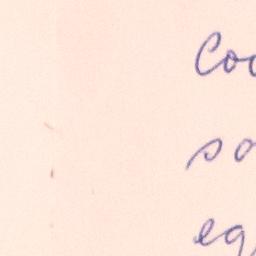 Coo
so
eg